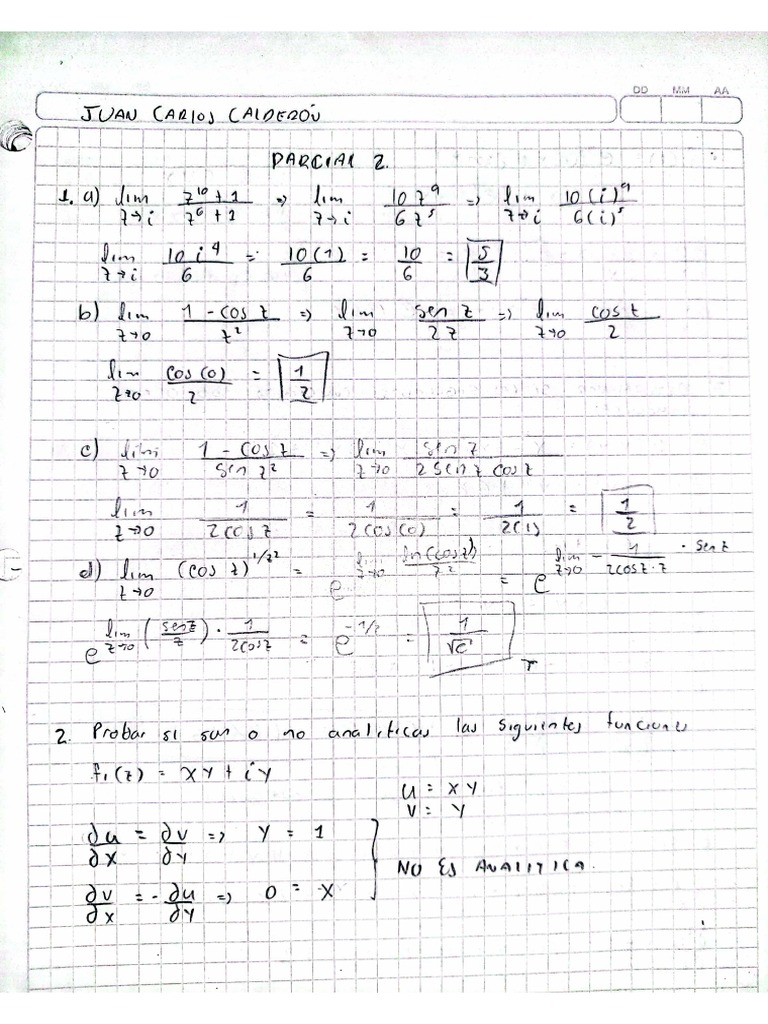 DD MM AA
JUAN CARLOS CALDERÓN
PARCIAL 2.
1. a) lim z→i (z^10 + 1)/(z^6 + 1) => lim z→i 10z^9/6z^5 => lim z→i 10(i)^9/6(i)^5
lim z→i 10 i^4/6 = 10(1)/6 = 10/6 = 5/3
b) lim z→0 (1 - cos z)/z^2 => lim z→0 sen z/2z => lim z→0 cos z/2
lim z→0 cos(0)/2 = 1/2
c) lim z→0 (1 - cos z)/sen z^2 => lim z→0 sen z/(2 sen z cos z)
lim z→0 1/(2 cos z) = 1/(2 cos(0)) = 1/2(1) = 1/2
d) lim z→0 (cos z)^(1/z^2) = e^(lim z→0 ln(cos z)/z^2) = e^(lim z→0 - 1/(2cos z · z) · sen z)
e^(lim z→0 (sen z/z) · 1/(2cos z)) = e^(-1/2) = 1/√e
2. Probar si son o no analiticas las siguientes funciones
f1(z) = xy + iy
u = xy
v = y
∂u/∂x = ∂v/∂y => y = 1
NO ES ANALITICA.
∂v/∂x = - ∂u/∂y => 0 = x